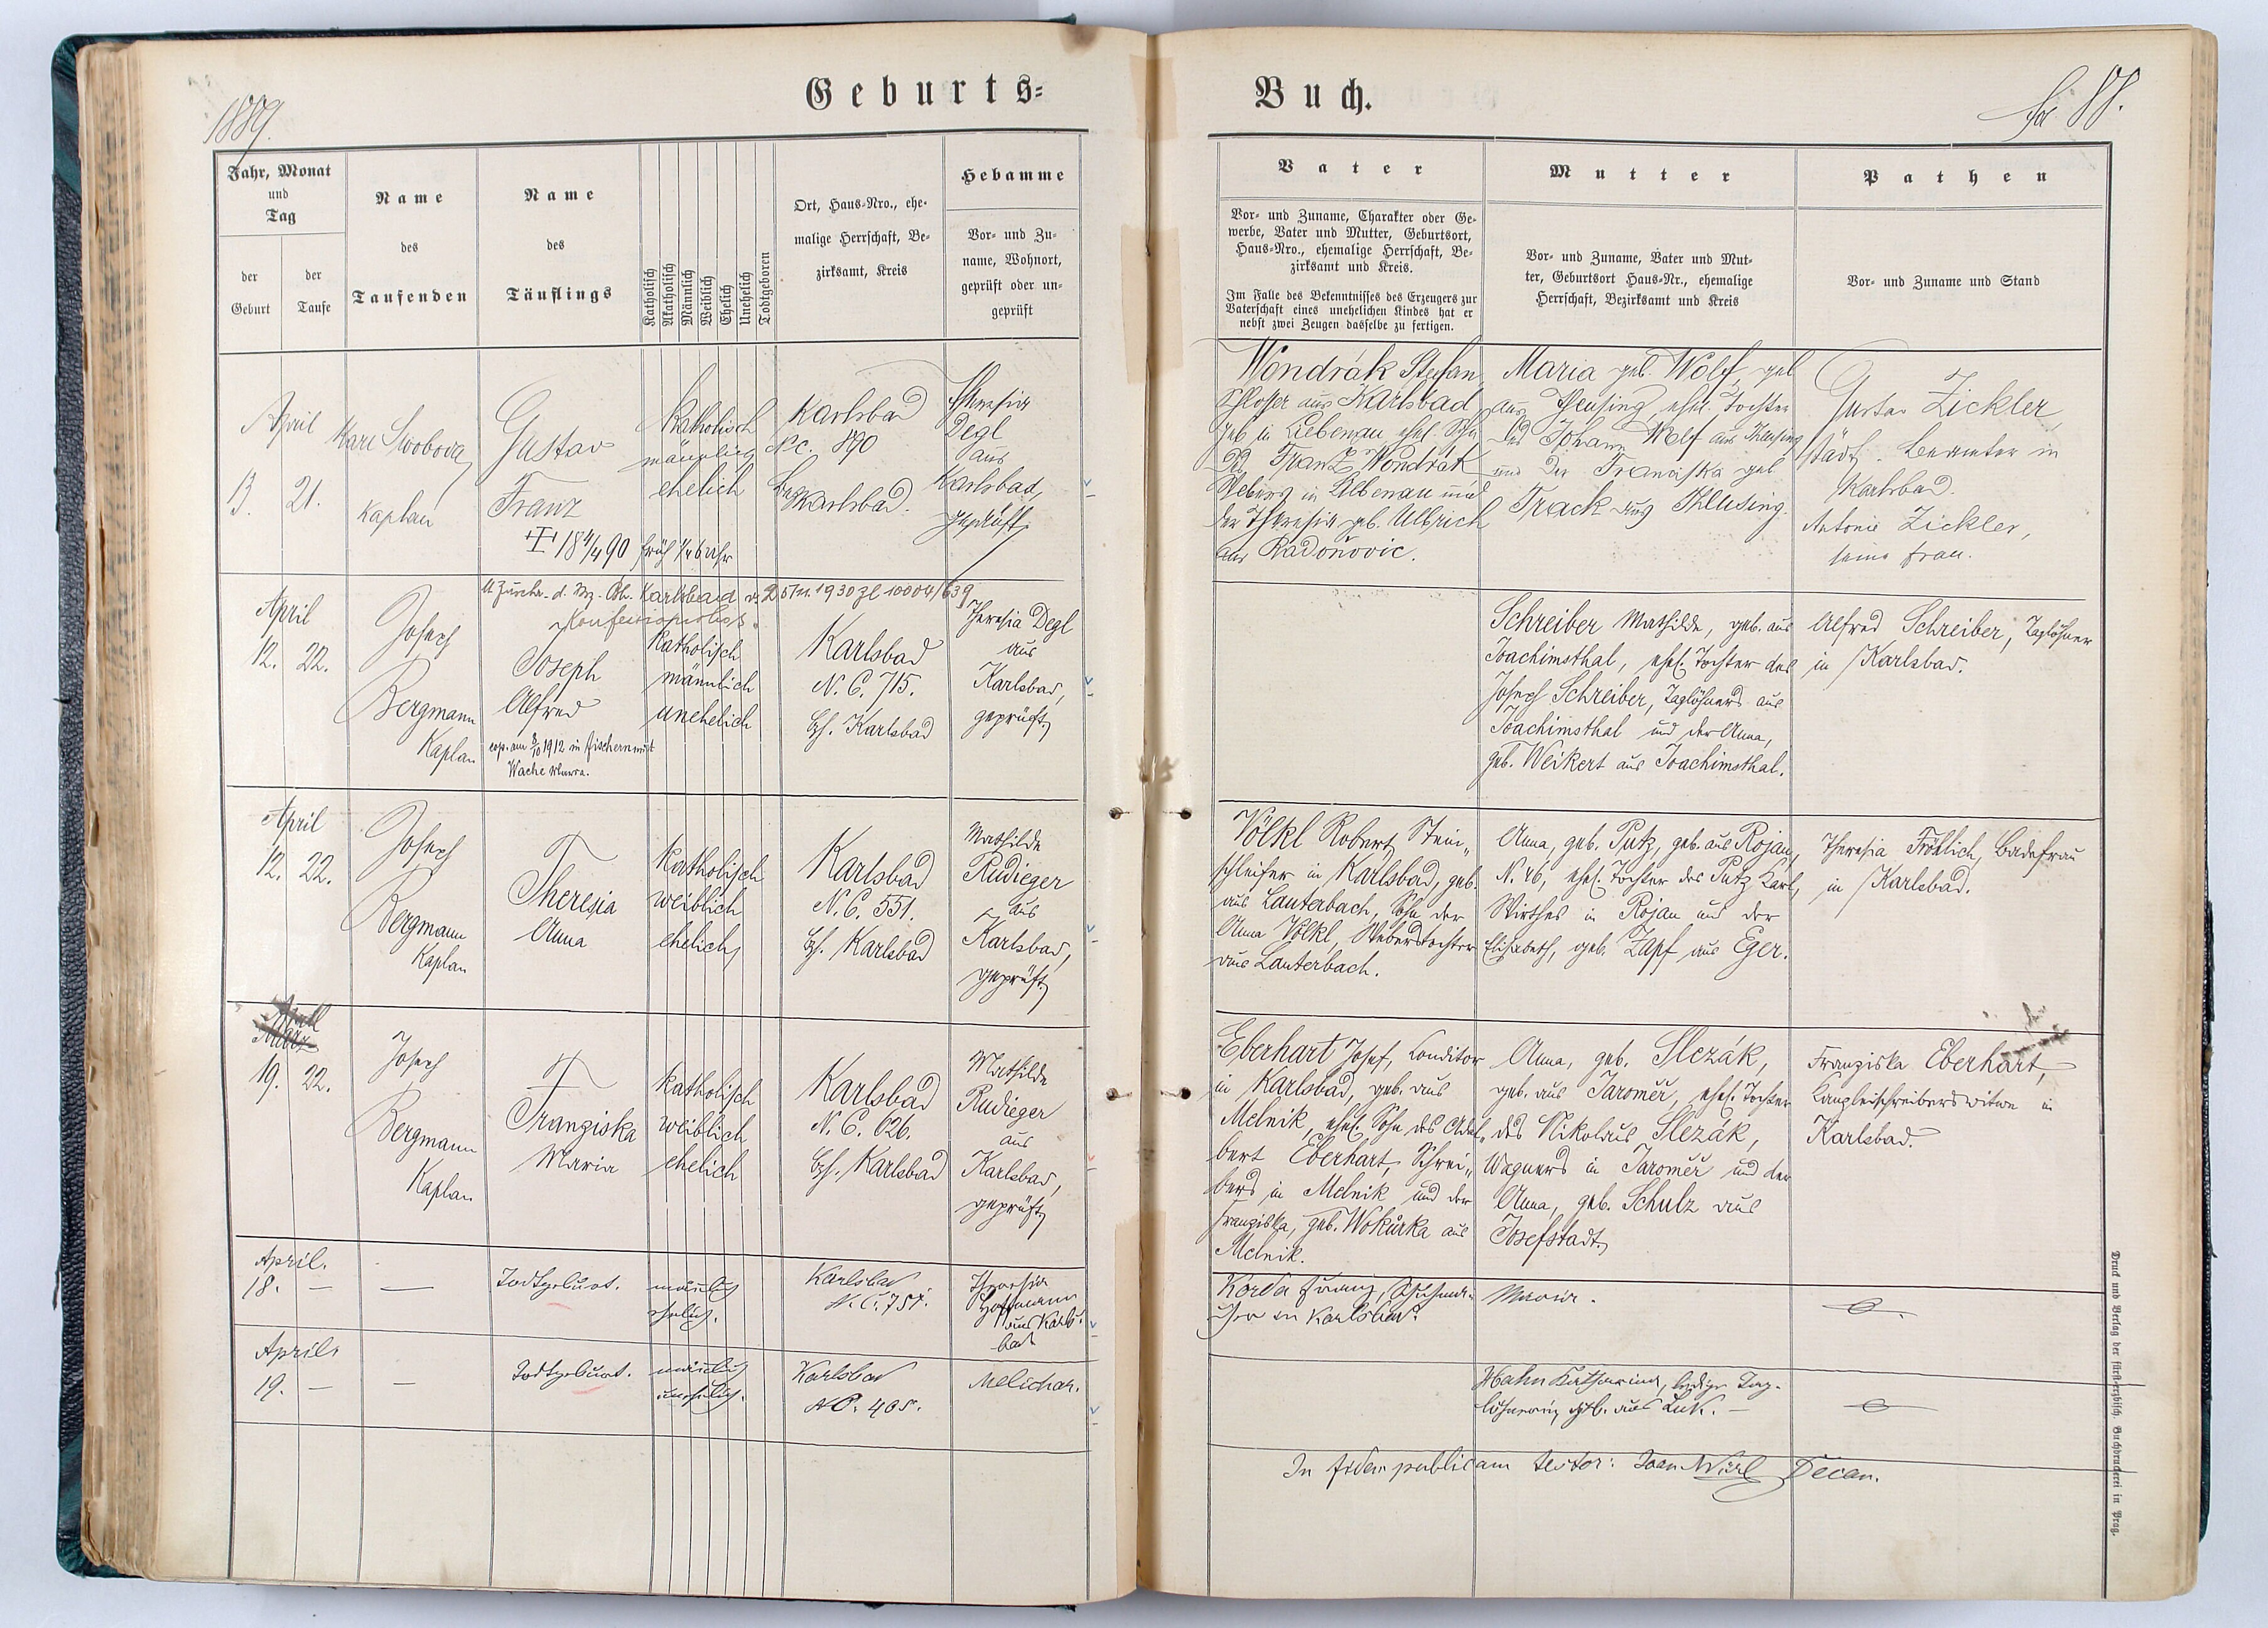 1889.
Geburts-
Buch.
Jahr, Monat
und
Tag
der
Geburt
der
Taufe
Name
des
Taufenden
Name
des
Täuflings
Katholisch
Akatholisch
Männlich
Weiblich
Ehelich
Unehelich
Todtgeboren
Ort, Haus-Nro., ehe-
malige Herrschaft, Be-
zirksamt, Kreis
Hebamme
Vor- und Zu-
name, Wohnort,
geprüft oder un-
geprüft
Vater
Vor- und Zuname, Charakter oder Ge-
werbe, Vater und Mutter, Geburtsort,
Haus-Nro., ehemalige Herrschaft, Be-
zirksamt und Kreis.
Im Falle des Bekenntnisses des Erzeugers zur
Vaterschaft eines unehelichen Kindes hat er
nebst zwei Zeugen dasselbe zu fertigen.
Mutter
Vor- und Zuname, Vater und Mut-
ter, Geburtsort Haus-Nr., ehemalige
Herrschaft, Bezirksamt und Kreis
Pathen
Vor- und Zuname und Stand
April
13. 21.
Karl Swoboda
Kaplan
Gustav
Franz
früh 1/4 6 Uhr
katholisch
männlich
ehelich
Karlsbad
Nc. 890
Bez. Karlsbad.
Theresia
Degl
aus
Karlsbad,
geprüft.
Wondrák Stefan,
Schlosser aus Karlsbad
geb. in Liebenau ehel. Sohn
des Franz Wondrák
Webers in Liebenau und
der Theresia geb. Ulbrich
aus Radoňovic.
Maria geb. Wolf, geb
aus Theusing, ehel. Tochter
des Johann Wolf aus Theusing
und der Franciska geb
Track aus Theusing.
Gustav Zickler,
städt. Beamter in
Karlsbad.
Antonie Zickler,
seine Frau.
Karlsbad 1930 Zl 10004/639
Konfessionslos.
April
12. 22.
Josef
Bergmann
Kaplan
Joseph
Alfred
cop. am 8/10 1912 in Fischern mit
katholisch
männlich
unehelich
Karlsbad
N. C. 715.
Bzh. Karlsbad
Theresia Degl
aus
Karlsbad,
geprüft.
Schreiber Mathilde, geb. aus
Joachimsthal, ehel. Tochter des
Josef Schreiber, Taglöhners aus
Joachimsthal und der Anna,
geb. Weikert aus Joachimsthal.
Alfred Schreiber, Taglöhner
in Karlsbad.
April
12. 22.
Josef
Bergmann
Kaplan
Theresia
Anna
katholisch
weiblich
ehelich
Karlsbad
N. C. 551.
Bzh. Karlsbad
Mathilde
Rudieger
aus
Karlsbad,
geprüft.
Völkl Robert, Stein-
schleifer in Karlsbad, geb.
aus Lauterbach, Sohn der
Anna Völkl, Weberstochter
aus Lauterbach.
Anna, geb. Putz, geb. aus Rojau,
N. 46, ehel. Tochter des Putz Karl,
Wirthes in Rojau und der
Elisabeth, geb. Zapf aus Eger.
Theresia Fröhlich, Badefrau
in Karlsbad.
April
19. 22.
Josef
Bergmann
Kaplan
Franziska
Maria
katholisch
weiblich
ehelich
Karlsbad
N. C. 626.
Bzh. Karlsbad
Mathilde
Rudieger
aus
Karlsbad,
geprüft.
Eberhart Josef, Conditor
in Karlsbad, geb. aus
Melnik, ehel. Sohn des Adal-
bert Eberhart, Schrei-
bers in Melnik und der
Franziska, geb. Wokůrka aus
Melnik.
Anna, geb. Slezák,
geb. aus Jaroměř, ehel. Tochter
des Nikolaus Slezák,
Wagners in Jaroměř und der
Anna, geb. Schulz aus
Josefstadt.
Franziska Eberhart,
Kanzleischreiberswitwe in
Karlsbad.
April.
18. — —
Todtgeburt.
männlich
ehelich.
Karlsbad
N. C. 751.
Theresia
Hofmann
aus Karls-
bad
Korda Franz, Schuhma-
cher in Karlsbad.
Maria.
April.
19. — —
Todtgeburt.
männlich
unehelich.
Karlsbad
NC. 405.
Melichar.
Hahn Katharina, ledige Tag-
löhnerin, geb. aus Luk. —
In fidem publicam testor: Decan.
Druck und Verlag der fürst-erzbisch. Buchdruckerei in Prag.